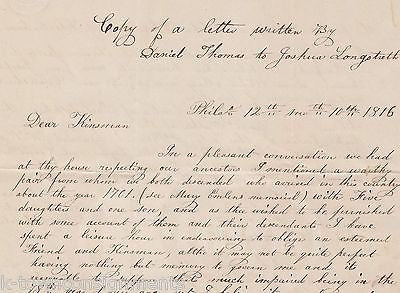 Copy of a letter written By
Daniel Thomas to Joshua Longstreth
Philada 12th mth 10th 1816
Dear Kinsman
In a pleasant conversation we had
at thy house respecting our ancestors I mentioned a worthy
pair from whom we both descended who arrived in this country
about the year 1701. (see Mary Emlens memorial) with Five
daughters and one son, and as thee wished to be furnished
with some account of them and their descendants I have
spent a leisure hour in endeavouring to oblige an esteemed
Friend and Kinsman, altho it may not be quite perfect
having nothing but memory to govern me and its
much impaired being in the